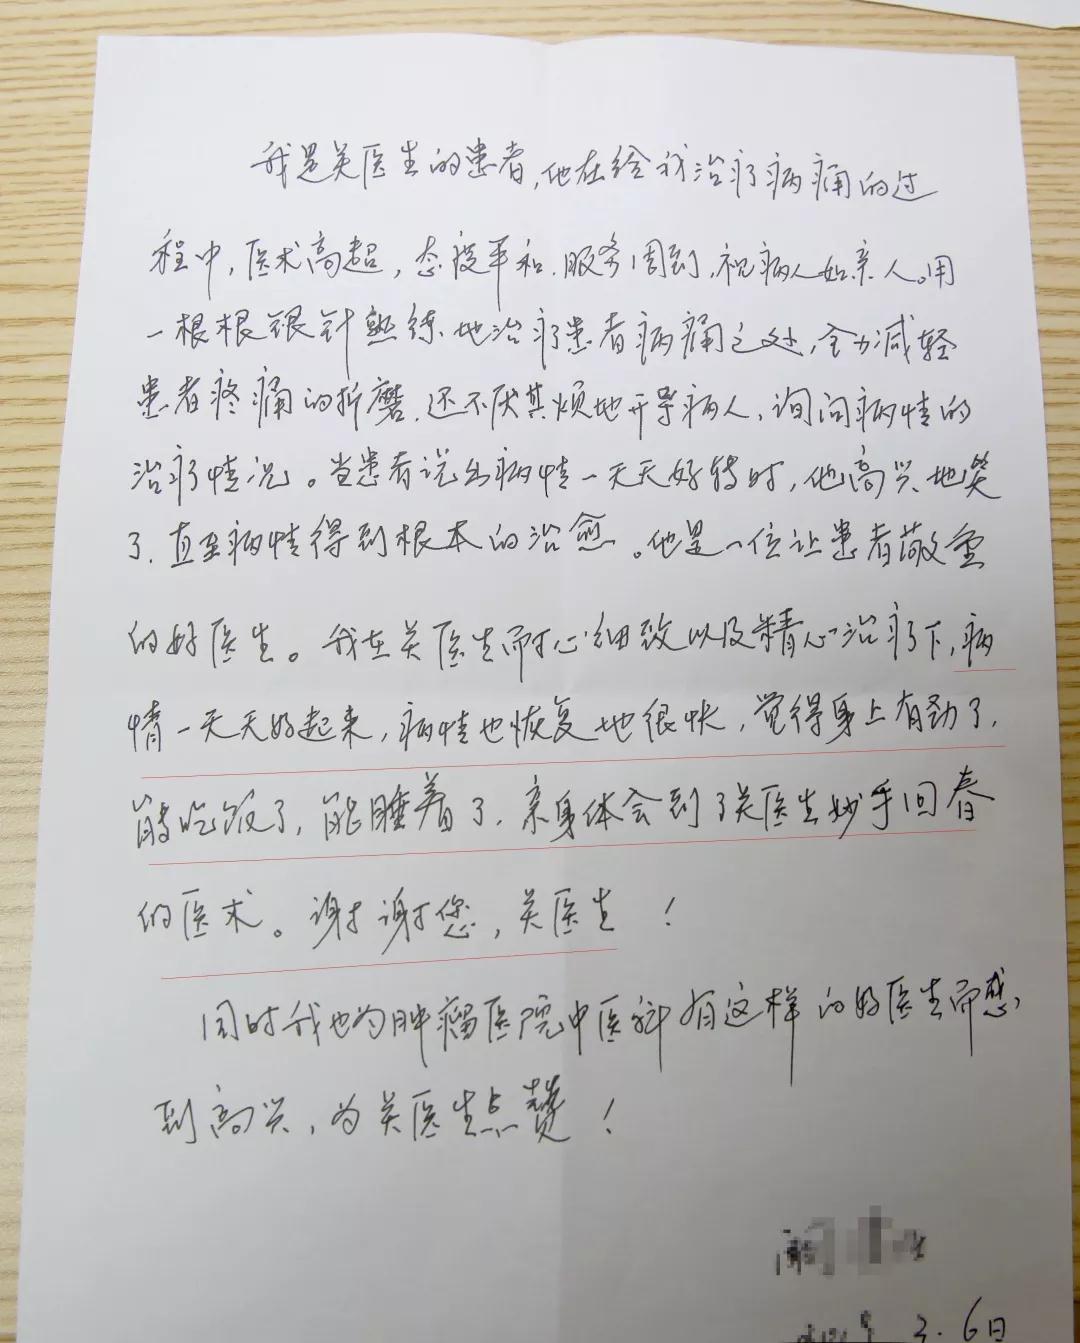 我是关医生的患者，他在给我治疗病痛的过
程中，医术高超，态度平和，服务周到，视病人如亲人。用
一根根银针熟练地治疗患者病痛之处，全力减轻
患者疼痛的折磨，还不厌其烦地开导病人，询问病情的
治疗情况。当患者说出病情一天天好转时，他高兴地笑
了，直至病情得到根本的治愈。他是一位让患者敬重
的好医生。我在关医生耐心细致以及精心治疗下，病
情一天天好起来，病情也恢复地很快，觉得身上有劲了，
能吃饭了，能睡着了，亲身体会到了关医生妙手回春
的医术。谢谢您，关医生！
同时我也为肿瘤医院中医科有这样的好医生而感
到高兴，为关医生点赞！
3.6日